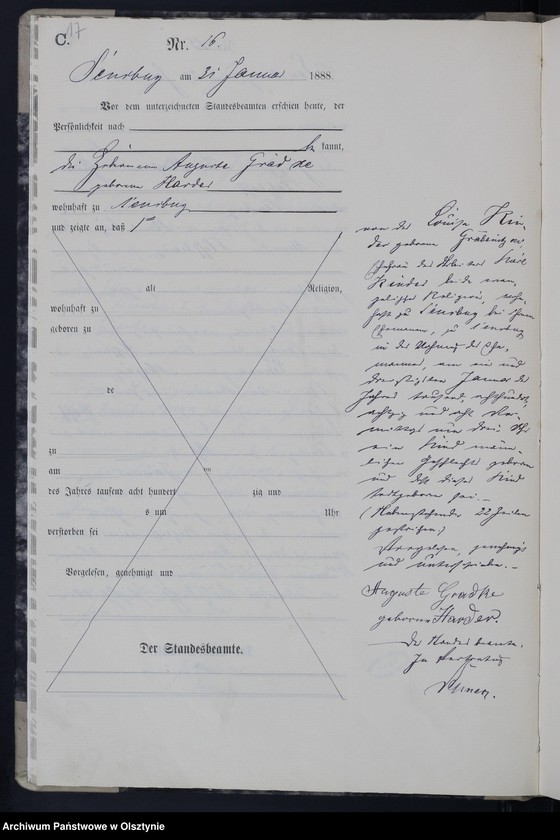 17
C.
Nr. 16.
Sensburg am 31 Januar 1888.
Vor dem unterzeichneten Standesbeamten erschien heute, der
Persönlichkeit nach
be kannt,
die Hebamme Auguste Gradke
geborene Harder
wohnhaft zu Sensburg
und zeigte an, daß
alt Religion,
wohnhaft zu
geboren zu
de
zu
am
des Jahres tausend acht hundert zig und
s um Uhr
verstorben sei
Vorgelesen, genehmigt und
Der Standesbeamte.
von der Louise Kin-
der geborene
Ehefrau des Karl
Kinder beide evan-
gelischer Religion, wohn-
haft zu Sensburg bei ihrem
Ehemanne, zu Sensburg
in der Wohnung des Ehe-
mannes, am ein und
dreißigsten Januar des
Jahres tausend achthundert
achtzig und acht Nach-
mittags um drei Uhr
ein Kind männ-
lichen Geschlechts geboren
und daß dieses Kind
todtgeboren sei.-
(Nebenstehende 22 Zeilen
gestrichen)
Vorgelesen, genehmigt
und unterschrieben.-
Auguste Gradke
geborene Harder.
Der Standesbeamte.
In Vertretung
Archiwum Państwowe w Olsztynie